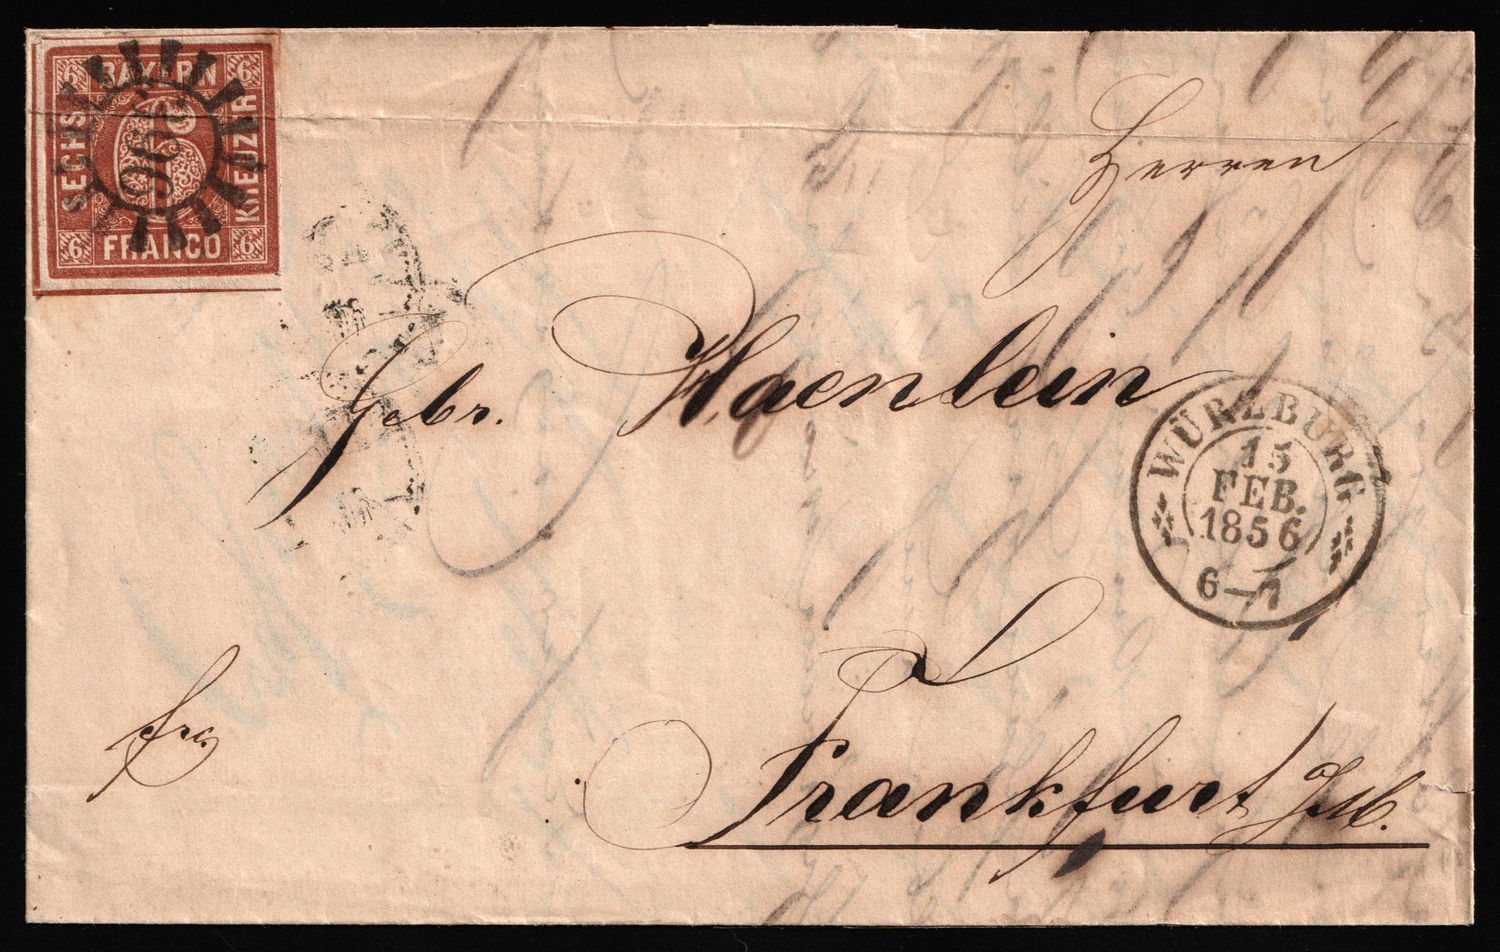 6 BAYERN 6
SECHS
KREUZER
6 FRANCO 6
Herren
Gebr. Haenlein
WÜRZBURG
15
FEB.
1856
6—7
fro.
Frankfurt